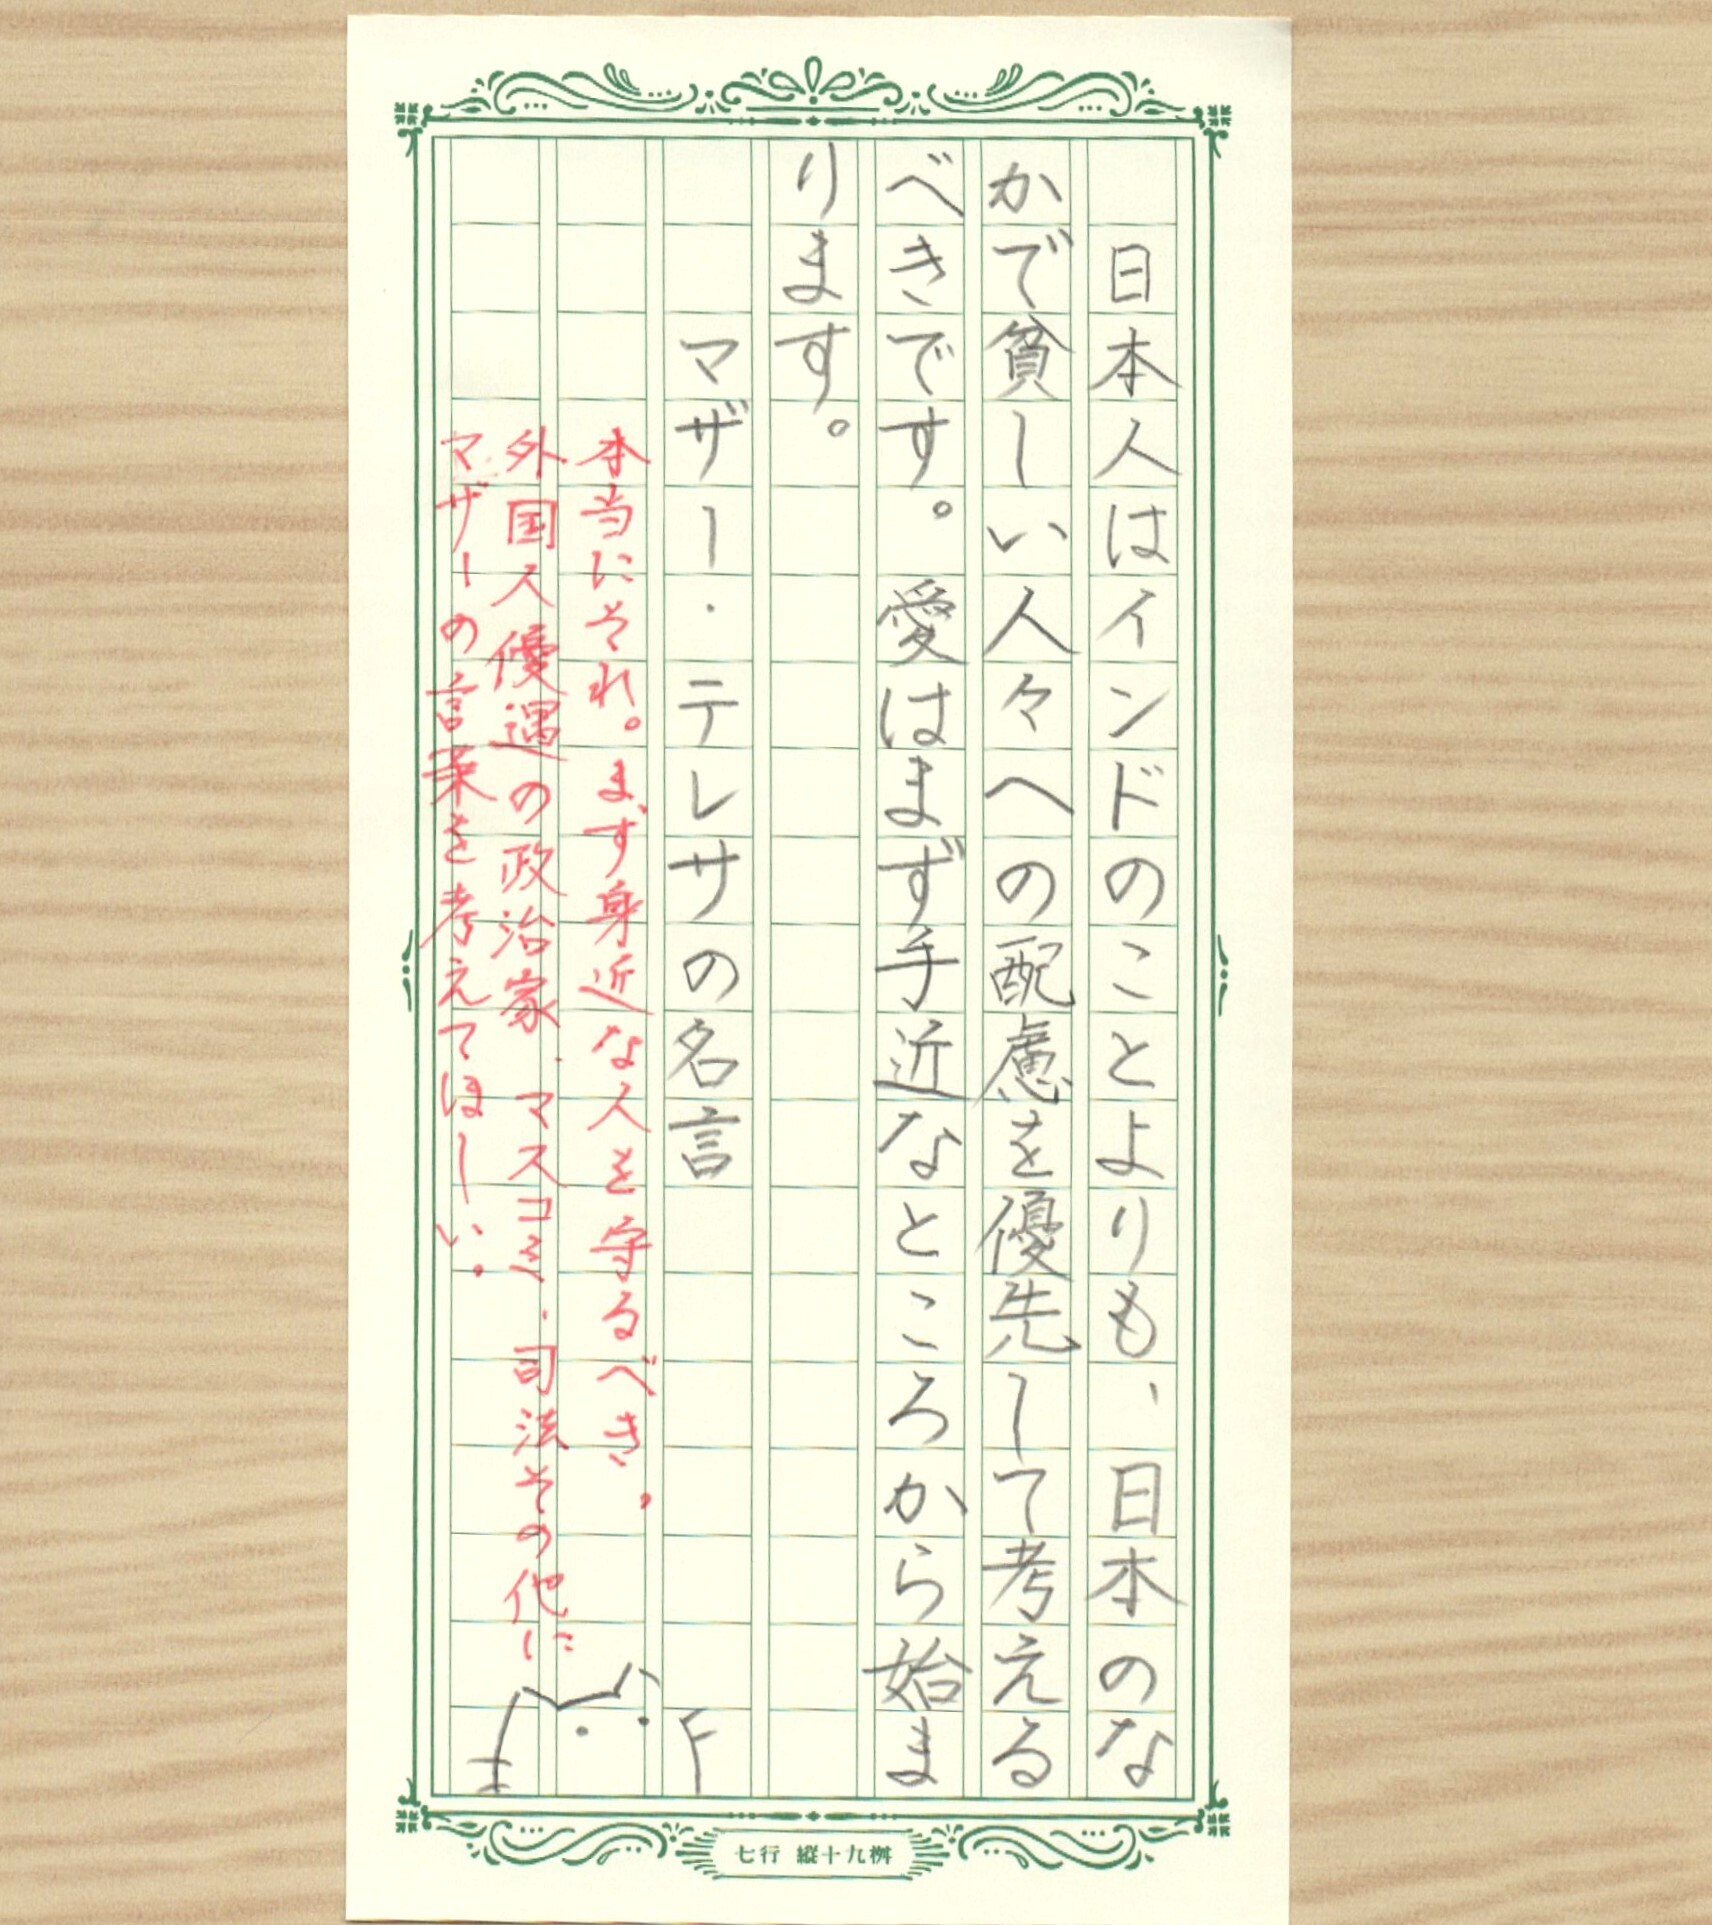 日本人はインドのことよりも、日本のな
かで貧しい人々への配慮を優先して考える
べきです。愛はまず手近なところから始ま
ります。
マザー・テレサの名言
本当にそれ。まず身近な人を守るべき。
外国人優遇の政治家、マスコミ、司法その他に
マザーの言葉を考えてほしい。
七行 縦十九桝